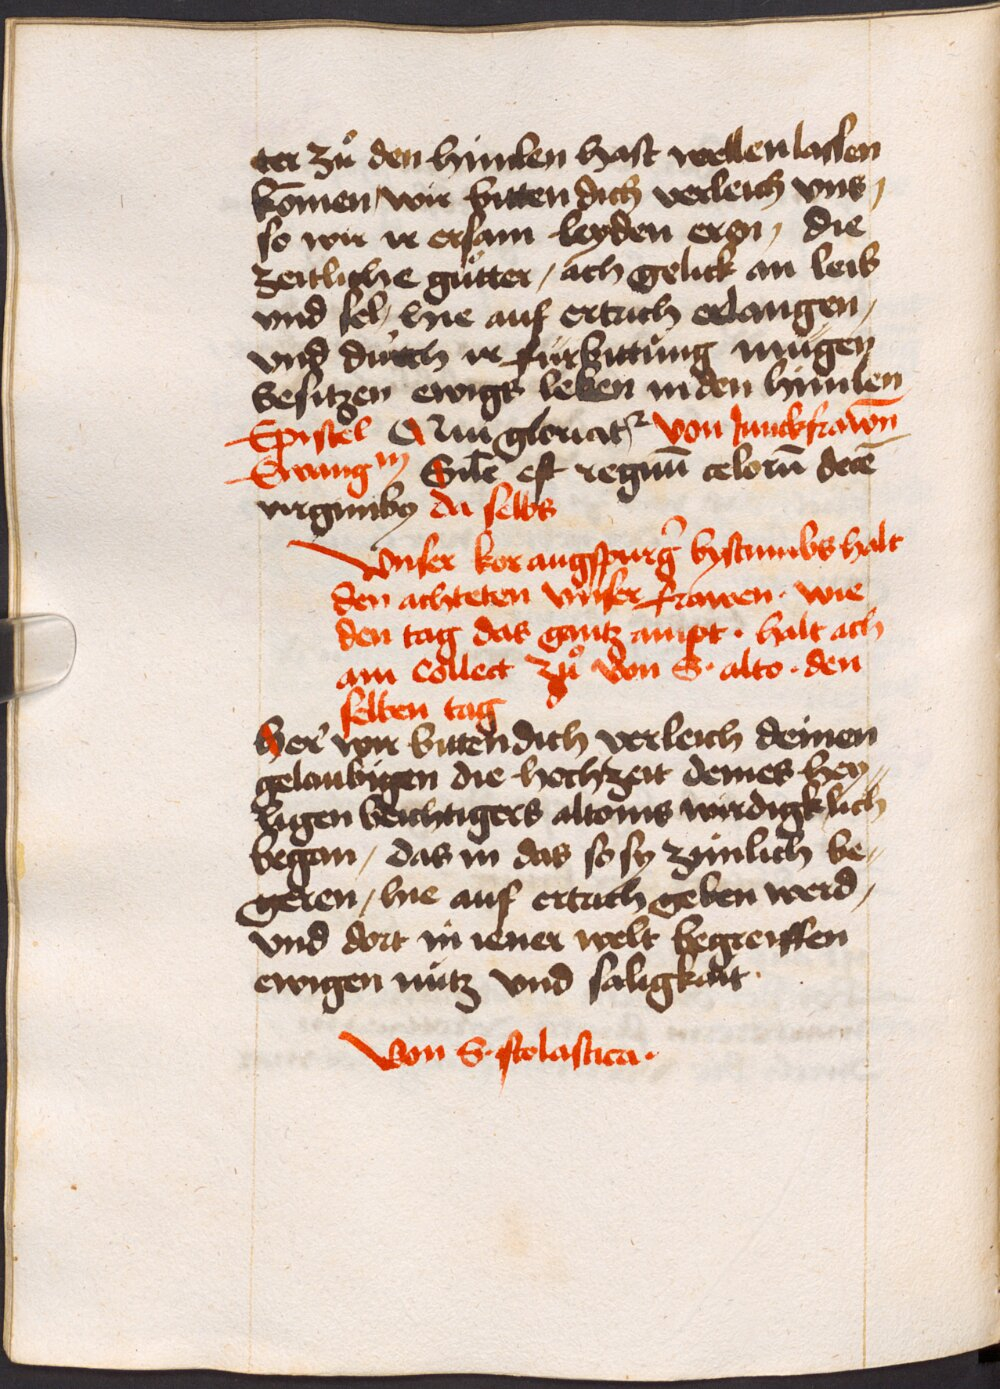 ter zů den himlen hast wellen lassen
kōmen / wir bitten dich verleich vns /
so wir ir ersam leyden eren / die
zeitliche gůtter / ach gelick an leib
vnd sel / hie auf ertrich erlangen /
vnd durch ir fürbittung mügen
besitzen ewigs leben in den himlen
Epistel Qui gloriatr von Junckfrawn̄
Ewangm Sile est regnū celorū decē
virginiby da selbs
Vnser kor augspurg bystumbs halt
den achteten vnser frawen · wie
den tag das gantz ampt · halt ach
am Collect zů von S · alto · den
selben tag
Her wir bitten dich verleich deinen
gelaubigen die hochzeit deines hey//
ligen beichtigers altonis wirdigklich
began / das in das so sy zimlich be//
geren / hie auf ertrich geben werd /
vnd dort in iener welt begreiffen
ewigen nutz vnd saligkait ·
Von S · scolastica ·